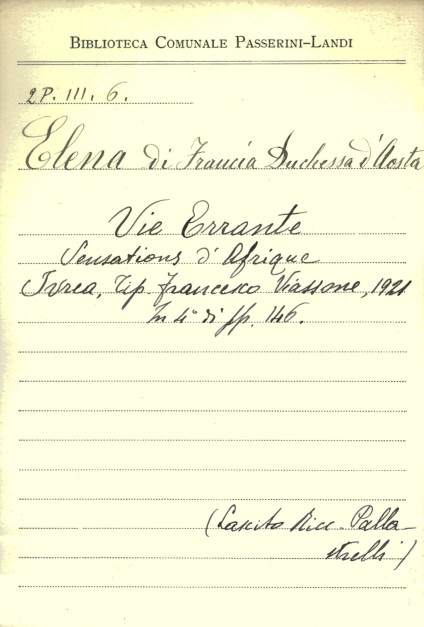 BIBLIOTECA COMUNALE PASSERINI-LANDI
2P. III. 6.
Elena di Francia Duchessa d'Aosta
Vie Errante
Sensations d'Afrique
Ivrea, Tip. Francesco Viassone, 1921
In 4° di pp. 146.
(Lascito Ricc. Palla-
strelli)